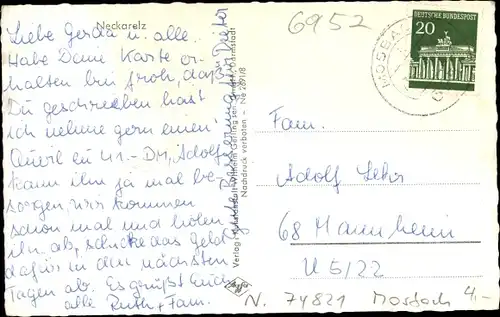 Neckarelz
6952
Liebe Gerda u. alle.
Habe Deine Karte er-
halten bin froh, daß
Du geschrieben hast
ich nehme gern einen
41.-DM, Adolf
kann ihn ja mal be-
sorgen, wir kommen
schon mal und holen
ihn ab, schicke das Geld
dafür in den nächsten
Tagen ab. Es grüßt Euch
alle Ruth + Fam.
Dieter
Nachdruck verboten – Ne 2691/8
DEUTSCHE BUNDESPOST
20
Fam.
Adolf Lehr
68 Mannheim
U 5/22
N. 74821 Mosbach 4,-